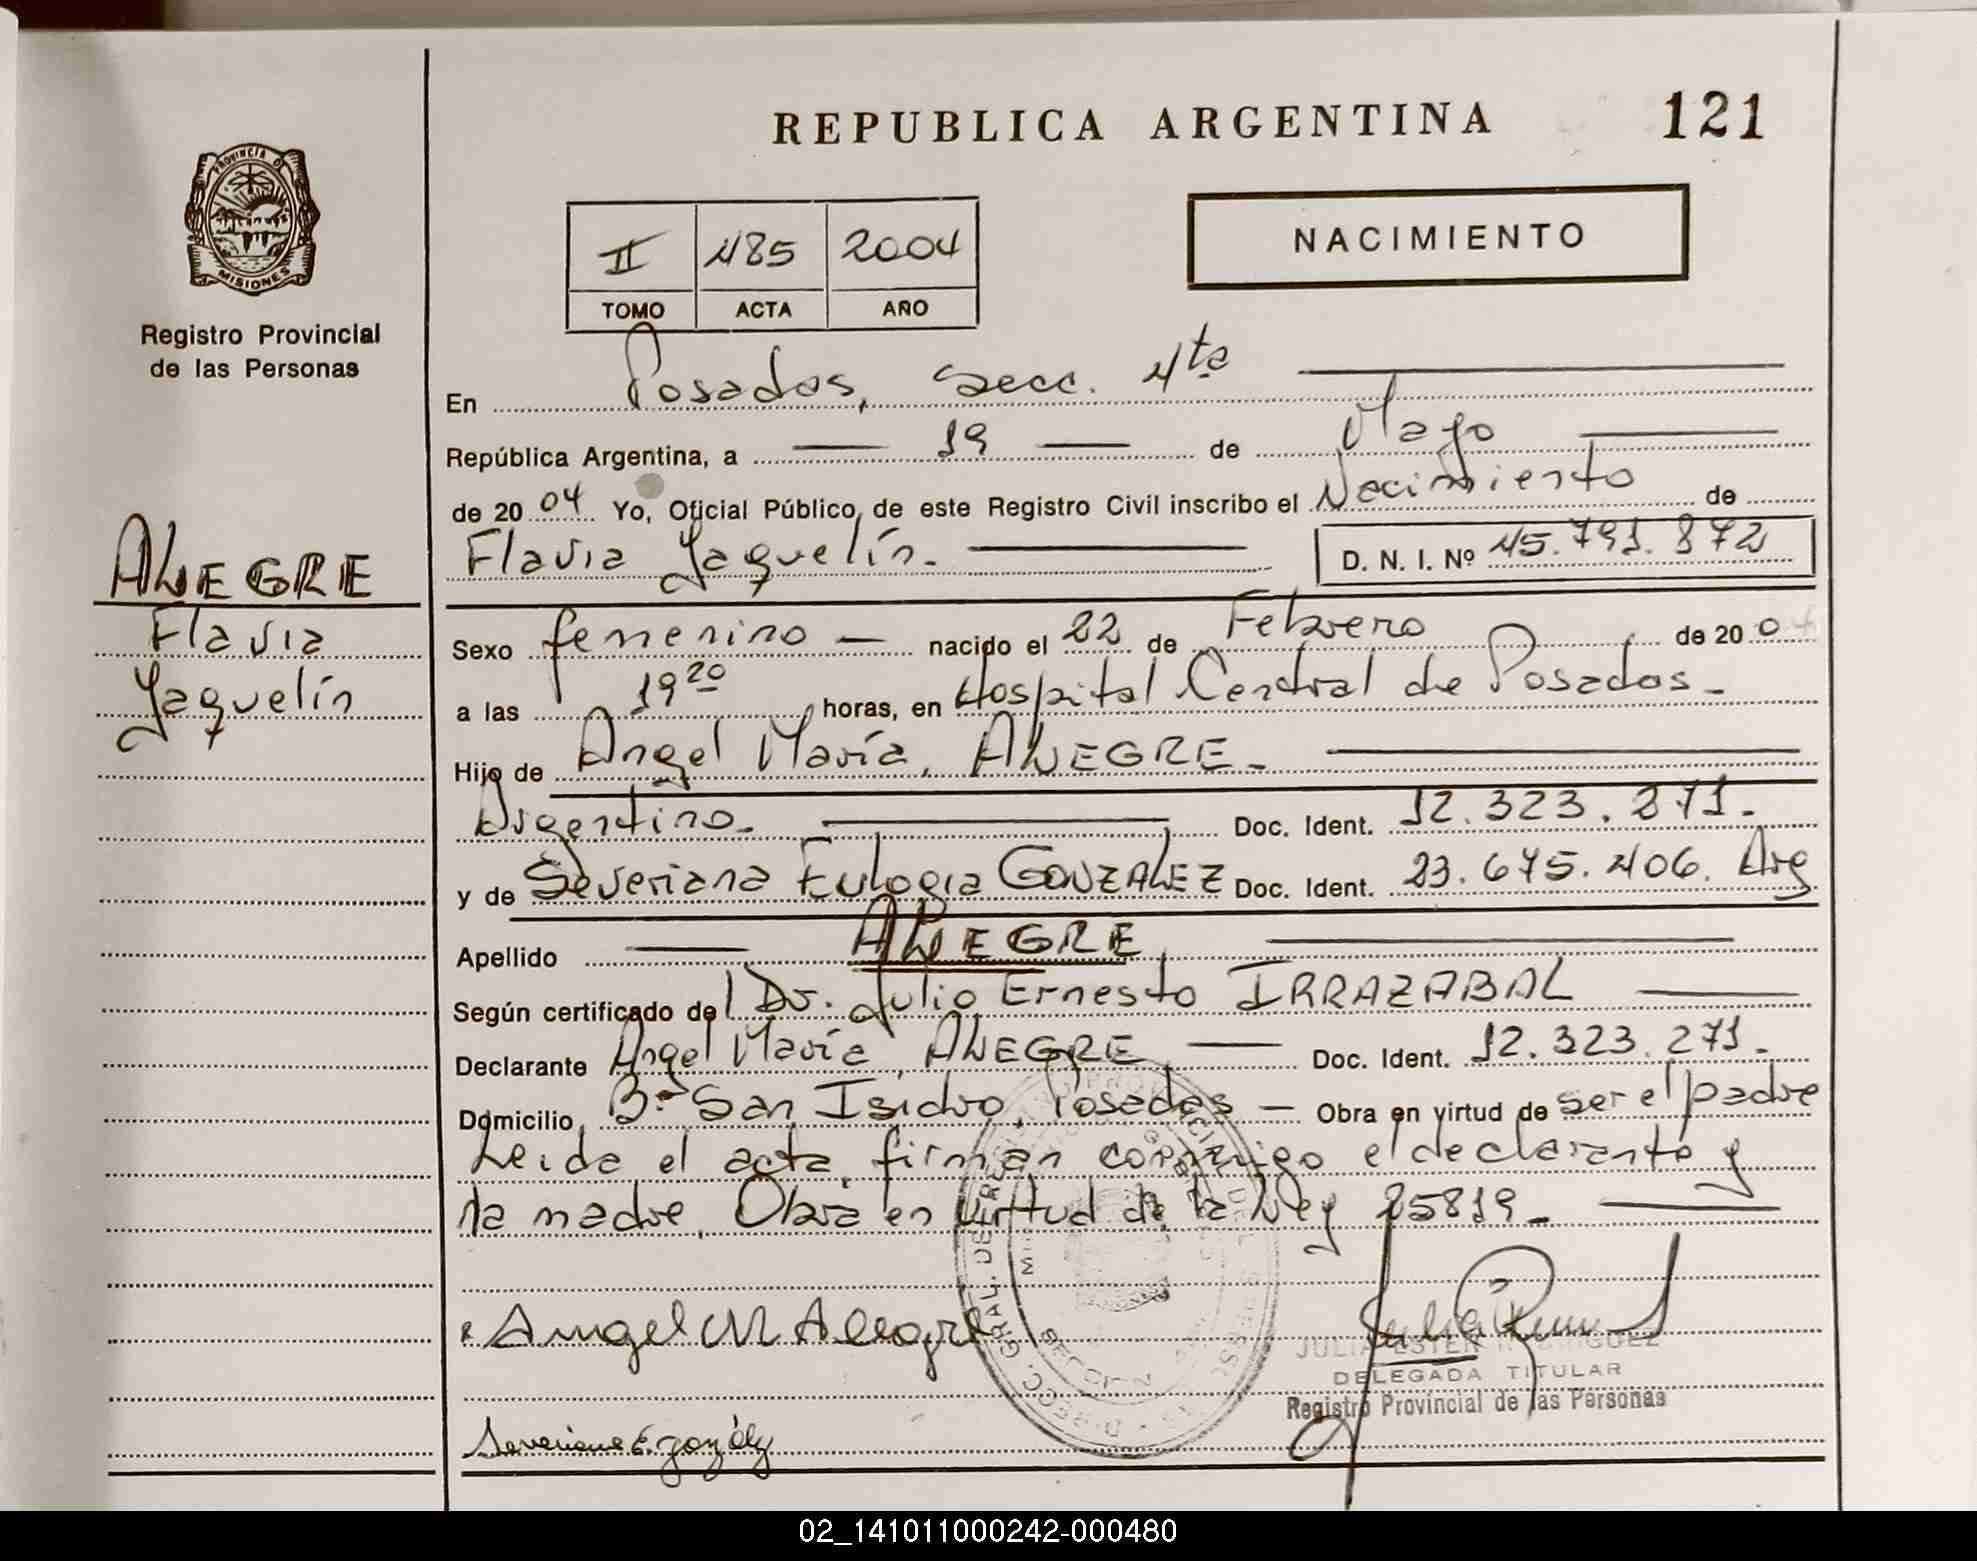 REPUBLICA ARGENTINA 121
PROVINCIA DE
MISIONES
Registro Provincial
de las Personas
II 485 2004
TOMO ACTA AÑO
NACIMIENTO
En Posadas, Secc. 4ta
República Argentina, a 19 de Mayo
de 2004 Yo, Oficial Público, de este Registro Civil inscribo el Nacimiento de
Flavia Jaquelín. D. N. I. Nº 45.791.872
ALEGRE
Flavia
Jaquelín
Sexo femenino — nacido el 22 de Febrero de 2004
a las 19 20 horas, en Hospital Central de Posadas.
Hijo de Angel María, ALEGRE.
Argentino. Doc. Ident. 12.323.271.
y de Severiana Eulogia GONZALEZ Doc. Ident. 23.675.406. Arg
Apellido ALEGRE
Según certificado del Dr. Julio Ernesto IRRAZABAL
Declarante Angel María, ALEGRE Doc. Ident. 12.323.271.
Domicilio Bº San Isidro, Posadas — Obra en virtud de ser el padre
Leida el acta, firman conmigo el declarante y
la madre. Obra en virtud de la Ley 25819.
Angel M Alegre
JULIA ESTER RODRIGUEZ
DELEGADA TITULAR
Registro Provincial de las Personas
Severiana E. gonzález
02_141011000242-000480